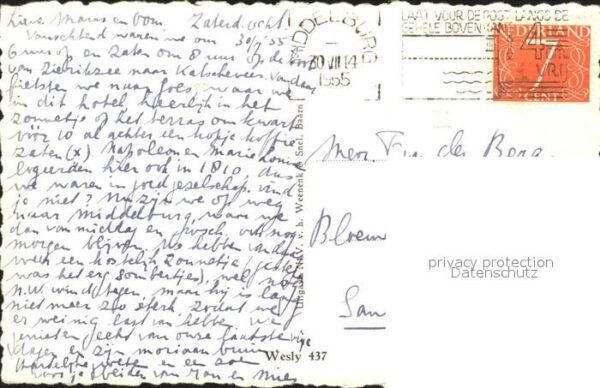 Lieve Mams en bom Zaterd. ocht.
Vanochtend waren we om 30/7/55
6 uur op en zaten om 8 uur op de boot
van Zierikzee naar Katscheveer. Vandaar
fietsten we naar Goes, waar we
in dit hotel heerlijk in het
zonnetje op het terras om kwart
vóór 10 al achter een kopje koffie
zaten (x). Napoleon en Marie Louise
logeerden hier ook in 1810, dus
we waren in goed gezelschap. Vind
je niet? Nu zijn we op weg
naar Middelburg, waar we
dan vanmiddag en misch. ook nog
morgen blijven. We hebben vandaag
weer een kostelijk zonnetje (gister
was het erg somber), wel nog
N.W. wind tegen, maar hij is lang
niet meer zoo sterk, zoodat we
er weinig last van hebben. We
genieten echt van onze laatste vrije
dagen en zijn moriaan bruin
Hartelijke groeten en een zoen
voor je beiden van Jan en Mies
MIDDELBURG
30 VII 14
1955
LAAT VOOR DE POST LANGS DE
GEHELE BOVENKANT
NEDERLAND
4
CENT
Mevr. F. v. der Berg
Bloem
San
Uitgave N.V. v. h. Weenenk & Snel, Baarn
Wesly 437
privacy protection
Datenschutz